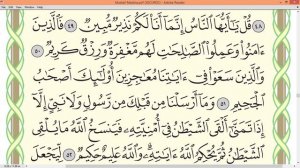 Adobe Reader
٤٨ قُلْ يَٰٓأَيُّهَا ٱلنَّاسُ إِنَّمَآ أَنَا۠ لَكُمْ نَذِيرٌ مُّبِينٌ ٤٩ فَٱلَّذِينَ
ءَامَنُوا۟ وَعَمِلُوا۟ ٱلصَّٰلِحَٰتِ لَهُم مَّغْفِرَةٌ وَرِزْقٌ كَرِيمٌ ٥٠
وَٱلَّذِينَ سَعَوْا۟ فِىٓ ءَايَٰتِنَا مُعَٰجِزِينَ أُو۟لَٰٓئِكَ أَصْحَٰبُ
ٱلْجَحِيمِ ٥١ وَمَآ أَرْسَلْنَا مِن قَبْلِكَ مِن رَّسُولٍ وَلَا نَبِىٍّ إِلَّآ
إِذَا تَمَنَّىٰٓ أَلْقَى ٱلشَّيْطَٰنُ فِىٓ أُمْنِيَّتِهِۦ فَيَنسَخُ ٱللَّهُ مَا يُلْقِى
ٱلشَّيْطَٰنُ ثُمَّ يُحْكِمُ ٱللَّهُ ءَايَٰتِهِۦ وَٱللَّهُ عَلِيمٌ حَكِيمٌ ٥٢ لِّيَجْعَلَ